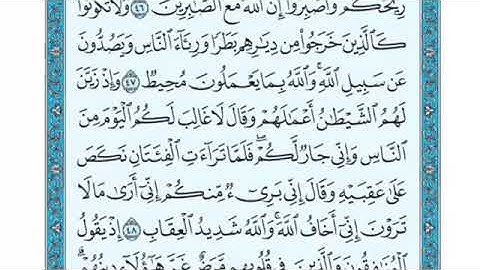 رِيحُكُمْ وَاصْبِرُوا إِنَّ اللَّهَ مَعَ الصَّابِرِينَ ٤٦ وَلَا تَكُونُوا
كَالَّذِينَ خَرَجُوا مِن دِيَارِهِم بَطَرًا وَرِئَاءَ النَّاسِ وَيَصُدُّونَ
عَن سَبِيلِ اللَّهِ وَاللَّهُ بِمَا يَعْمَلُونَ مُحِيطٌ ٤٧ وَإِذْ زَيَّنَ
لَهُمُ الشَّيْطَانُ أَعْمَالَهُمْ وَقَالَ لَا غَالِبَ لَكُمُ الْيَوْمَ مِنَ
النَّاسِ وَإِنِّي جَارٌ لَّكُمْ فَلَمَّا تَرَاءَتِ الْفِئَتَانِ نَكَصَ
عَلَىٰ عَقِبَيْهِ وَقَالَ إِنِّي بَرِيءٌ مِّنكُمْ إِنِّي أَرَىٰ مَا لَا
تَرَوْنَ إِنِّي أَخَافُ اللَّهَ وَاللَّهُ شَدِيدُ الْعِقَابِ ٤٨ إِذْ يَقُولُ
الْمُنَافِقُونَ وَالَّذِينَ فِي قُلُوبِهِم مَّرَضٌ غَرَّ هَٰؤُلَاءِ دِينُهُمْ